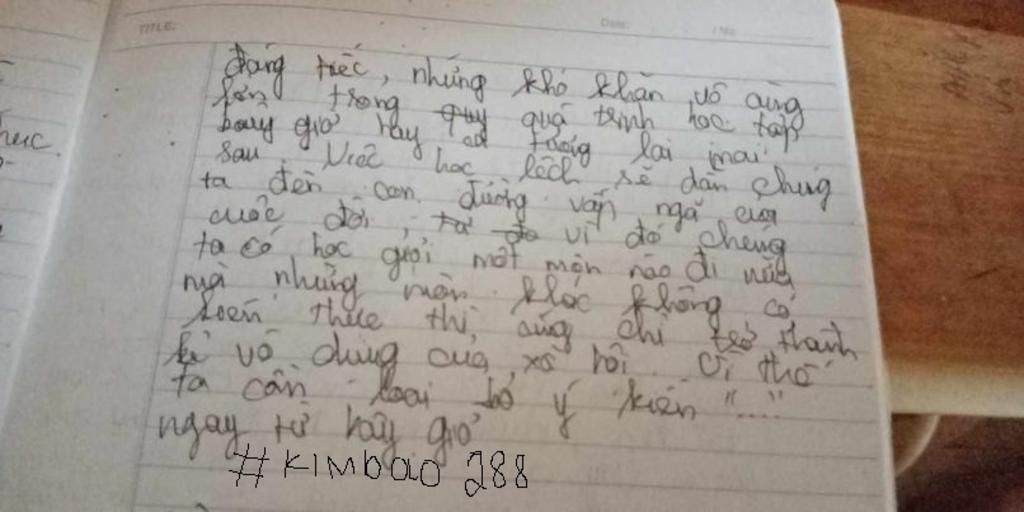 TITLE:
Date:
No
đáng tiếc, những khó khăn vô cùng
lớn trong quy quá trình học tập
bây giờ hay cả tương lai mai
sau. Việc học lệch sẽ dẫn chúng
ta đến con đường vấp ngã của
cuộc đời, vì đó chúng
ta có học giỏi một môn nào đi nữa
mà những môn khác không có
kiến thức thì cũng chỉ trở thành
kẻ vô dụng của xã hội. Vì thế
ta cần loại bỏ ý kiến "...."
ngay từ bây giờ
#KIMbao 288